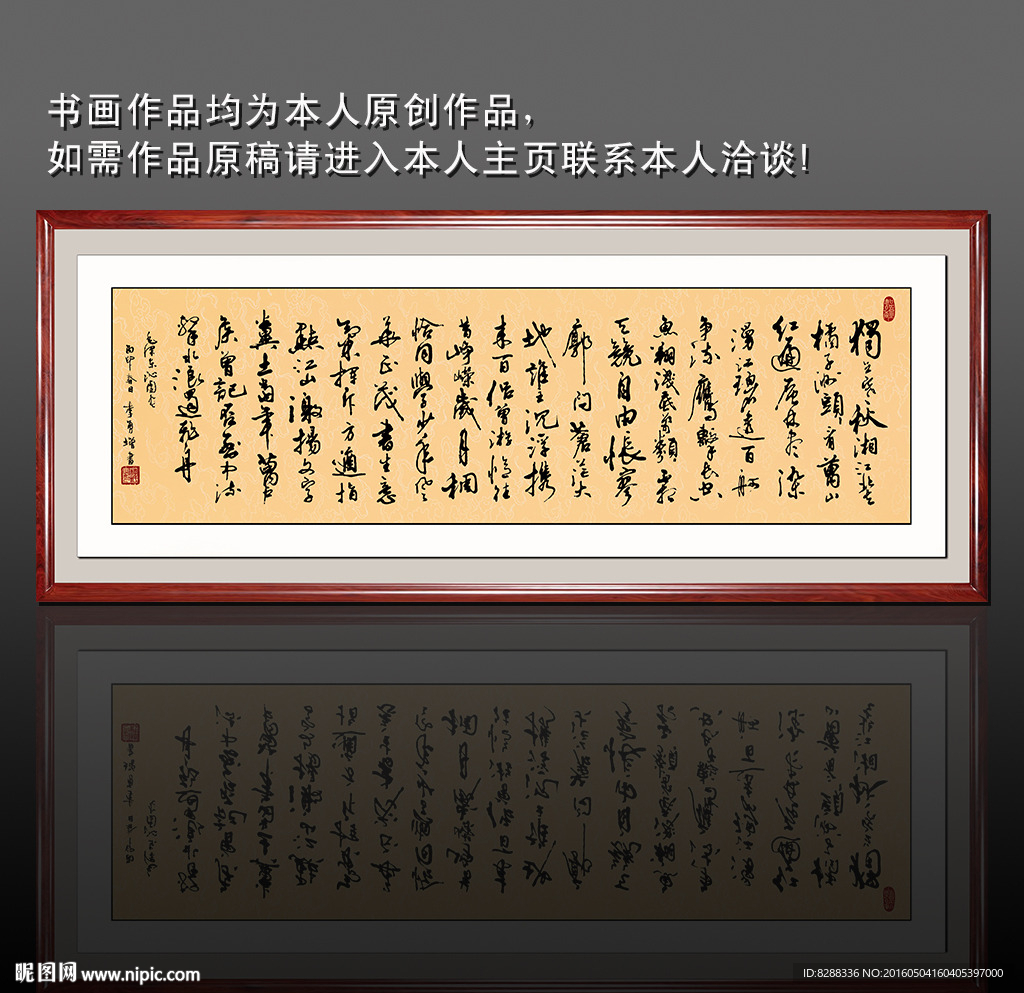 书画作品均为本人原创作品，
如需作品原稿请进入本人主页联系本人洽谈！
獨立寒秋湘江北去
橘子洲頭看萬山
红遍层林尽染
漫江碧透百舸
争流鹰擊长空
魚翔浅底萬類霜
天競自由怅寥
廓问蒼茫大
地誰主沉浮携
来百侣曾游忆往
昔峥嵘歲月稠
恰同學少年风
華正茂書生意
氣揮斥方遒指
點江山激揚文字
糞土當年萬户
侯曾記否到中流
擊水浪遏飛舟
毛泽东沁园春
丙申春日 李勇 書
昵图网 www.nipic.com
ID:8288336 NO:20160504160405397000